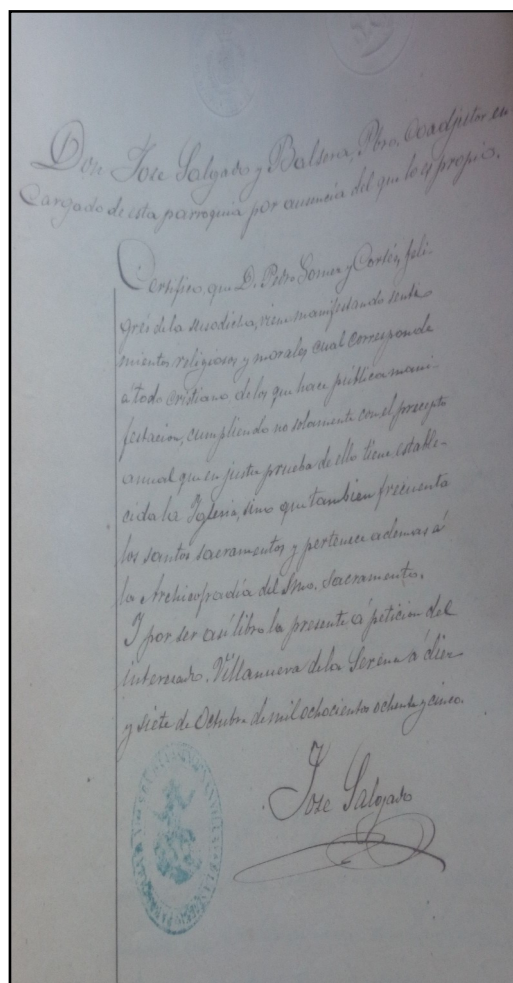 Don Jose Salgado y Balsera, Pbro. Coadjutor en
Cargado de esta parroquia por ausencia del que lo es propio.
Certifico que D. Pedro Gomez y Cortés, feli-
grés de la susodicha, viene manifestando senti-
mientos religiosos y morales cual corresponde
á todo cristiano de los que hace pública mani-
festacion, cumpliendo no solamente con el precepto
anual que en justa prueba de ello tiene estable-
cida la Iglesia, sino que tambien frecuenta
los santos sacramentos y pertenece ademas á
la Archicofradía del Smo. Sacramento.
Y por ser así libro la presente á peticion del
interesado. Villanueva de la Serena á diez
y siete de Octubre de mil ochocientos ochenta y cinco.
Jose Salgado